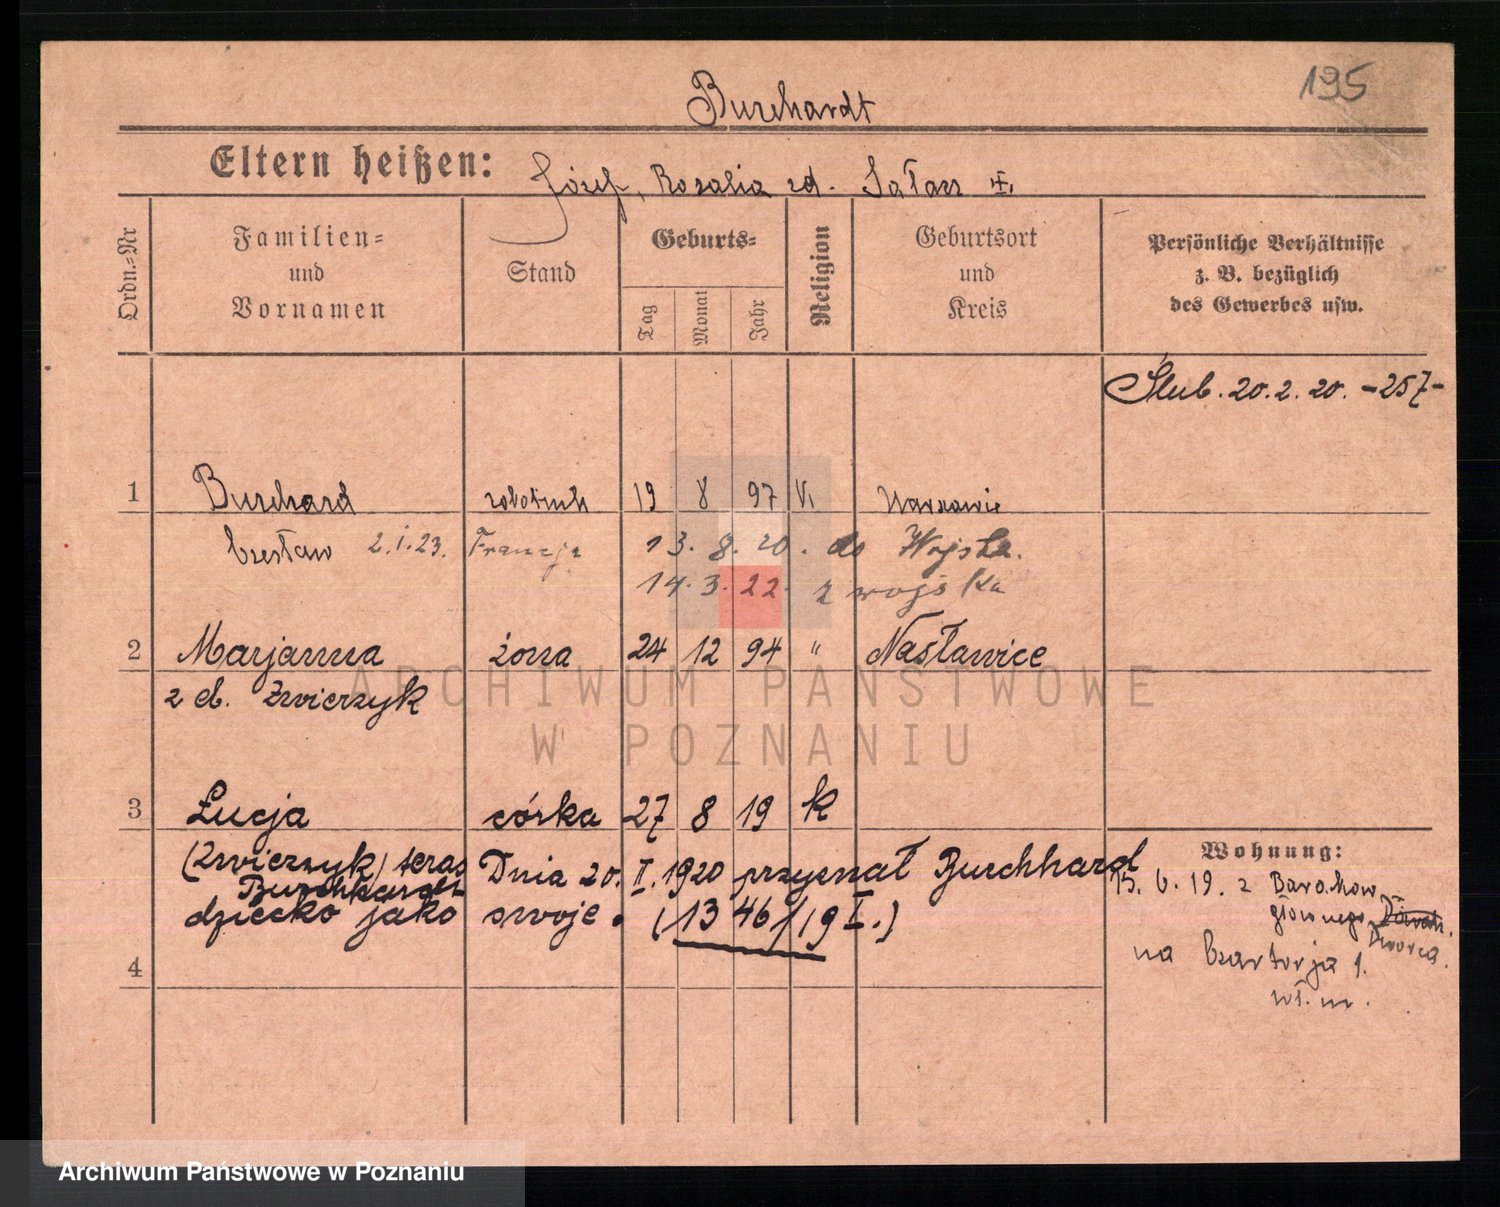 195
Burchardt
Eltern heißen: Józef, Rozalia zd.
Ordn.=Nr
Familien=
und
Vornamen
Stand
Geburts=
Tag
Monat
Jahr
Religion
Geburtsort
und
Kreis
Persönliche Verhältnisse
z. B. bezüglich
des Gewerbes usw.
Ślub. 20.2.20. -257-
1 Burchard robotnik 19 8 97 Warszawie
Czesław 2.1.23. Francja 13.8.20. do Wojska.
14.3.22. z wojska
2 Marjanna żona 24 12 94 " Nasławice
z d. Zwierzyk
3 Łucja córka 27 8 19 k
(Zwierzyk) teraz Dnia 20.II.1920 przyznał Burchhardt
Burchhardt
dziecko jako swoje. (1346/19 I.)
4
Wohnung:
15.6.19. z Baraków
głównego
Dworca.
na Czartorja 1.
wł. m.
ARCHIWUM PAŃSTWOWE
W POZNANIU
Archiwum Państwowe w Poznaniu